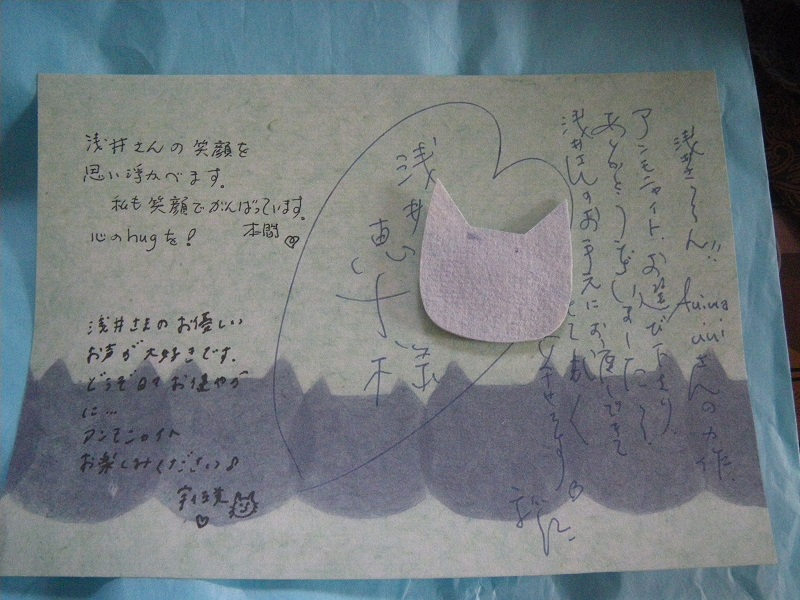 浅井さんの笑顔を
思い浮かべます。
私も笑顔でがんばっています。
心のhugを! 本間
浅井さまのお優しい
お声が大好きです。
どうぞ日々お健やか
に…
アンモニャイト
お楽しみください
浅井恵子様
アンモニャイト、お選び下さり
ありがとうございました
浅井さんのお手元にお渡しできて
とても
さんの力作